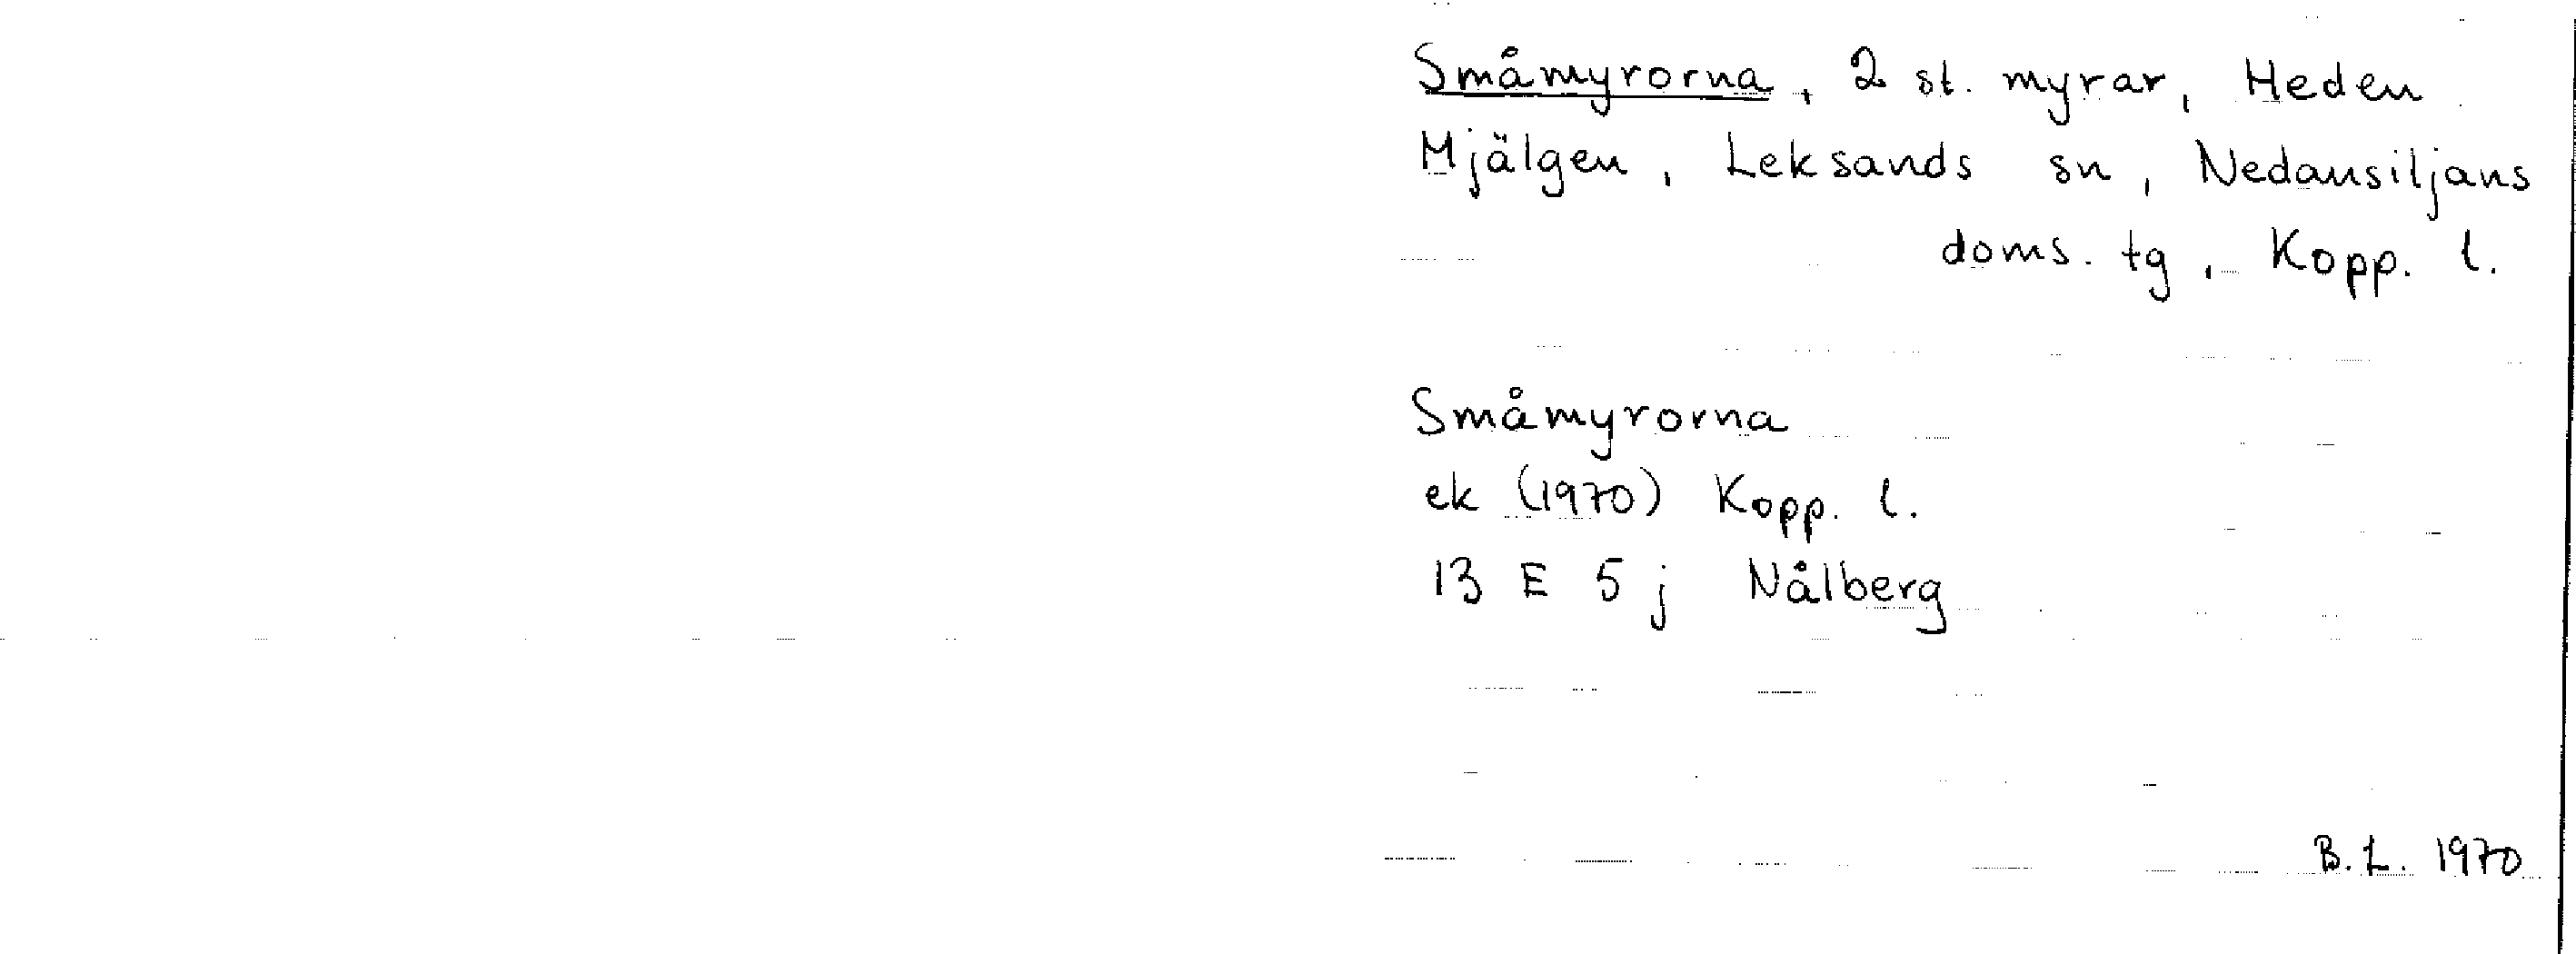 Småmyrorna, 2 st. myrar, Heden
Mjälgen, Leksands sn, Nedansiljans
doms. tg, Kopp. l.
Småmyrorna
ek (1970) Kopp. l.
13 E 5 j Nålberg
B.L. 1970